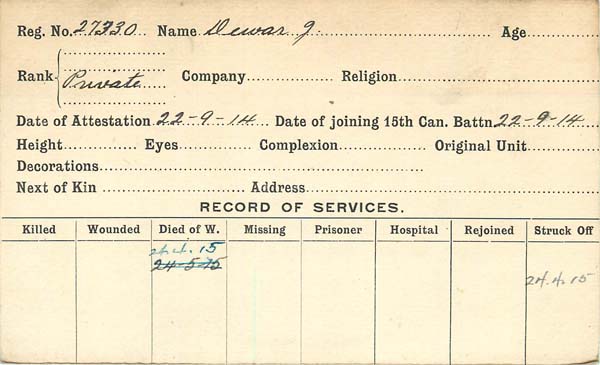 Reg. No. 27330 Name Dewar J. Age
Rank Private Company Religion
Date of Attestation 22-9-14 Date of joining 15th Can. Battn. 22-9-14
Height Eyes Complexion Original Unit
Decorations
Next of Kin Address
RECORD OF SERVICES.
Killed Wounded Died of W. Missing Prisoner Hospital Rejoined Struck Off
24.4.15
24-5-15
24.4.15